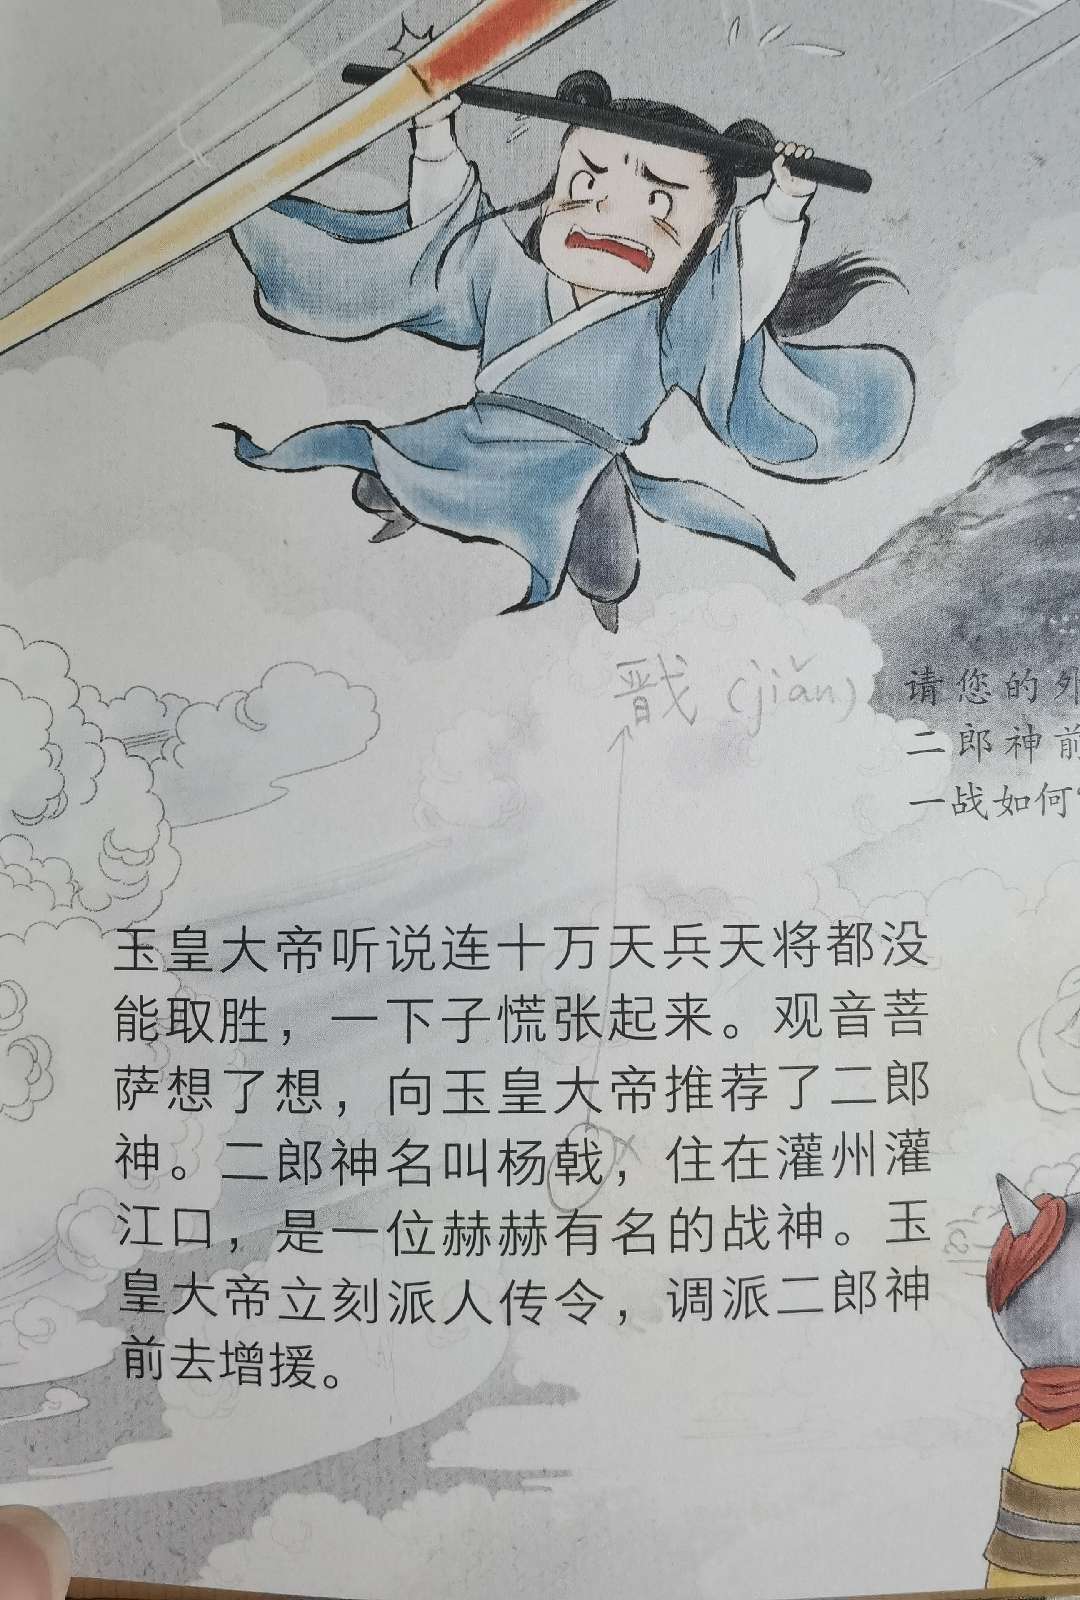 戬 (jiǎn)
请您的外
二郎神前
一战如何
玉皇大帝听说连十万天兵天将都没
能取胜，一下子慌张起来。观音菩
萨想了想，向玉皇大帝推荐了二郎
神。二郎神名叫杨戟，住在灌州灌
江口，是一位赫赫有名的战神。玉
皇大帝立刻派人传令，调派二郎神
前去增援。